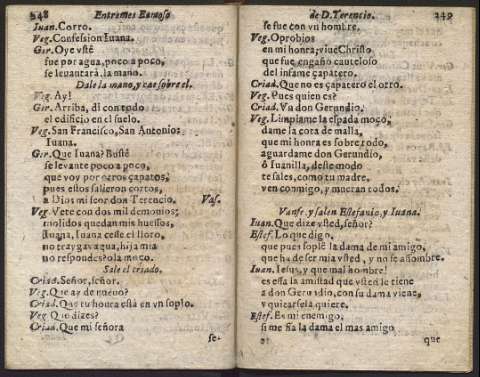 248 Entremes Famoso
Iuan. Corro.
Veg. Confession Iuana.
Ger. Oye vsté
fue por agua, poco a poco,
se leuantarà, la mano.
Dale la mano, y cae sobre el.
Veg. Ay!
Ger. Arriba, dì con todo
el edificio en el suelo.
Veg. San Francisco, San Antonio:
Iuana.
Ger. Que Iuana? Busté
se leuante poco a poco,
que voy por otros çapatos,
pues estos salieron cortos,
a Dios mi señor don Terencio. Vas.
Veg. Vete con dos mil demonios;
molidos quedan mis huessos,
Iuana, Iuana cesse el lloro,
no traygas agua, hija mia
no respondes? ola moço.
Sale el criado.
Criad. Señor, señor.
Veg. Que ay de nueuo?
Criad. Que tu honra està en vn soplo.
Veg. Que dizes?
Criad. Que mi señora
se
de D. Terencio. 249
se fue con vn hombre.
Veg. Oprobios
en mi honra, viue Christo
que fue engaño cauteloso
del infame çapatero.
Criad. Que no es çapatero el otro.
Veg. Pues quien es?
Criad. Vn don Gerundio.
Veg. Limpiame la espada moço,
dame la cota de malla,
que mi honra es sobre todo,
aguardame don Gerundio,
ò Iuanilla, deste modo
te sales, como tu madre,
ven conmigo, y mueran todos.
Vanse, y salen Estefanio, y Iuana.
Iuan. Que dize vsted, señor?
Estef. Lo que digo,
que pues soplè la dama de mi amigo,
que ha de ser mia vsted, y no se assombre.
Iuan. Iesus, y que mal hombre!
es essa la amistad que vsted le tiene
a don Gerundio, con su dama viene,
y quitarsela quiere.
Estef. Es mi enemigo,
si me fia la dama el mas amigo
que